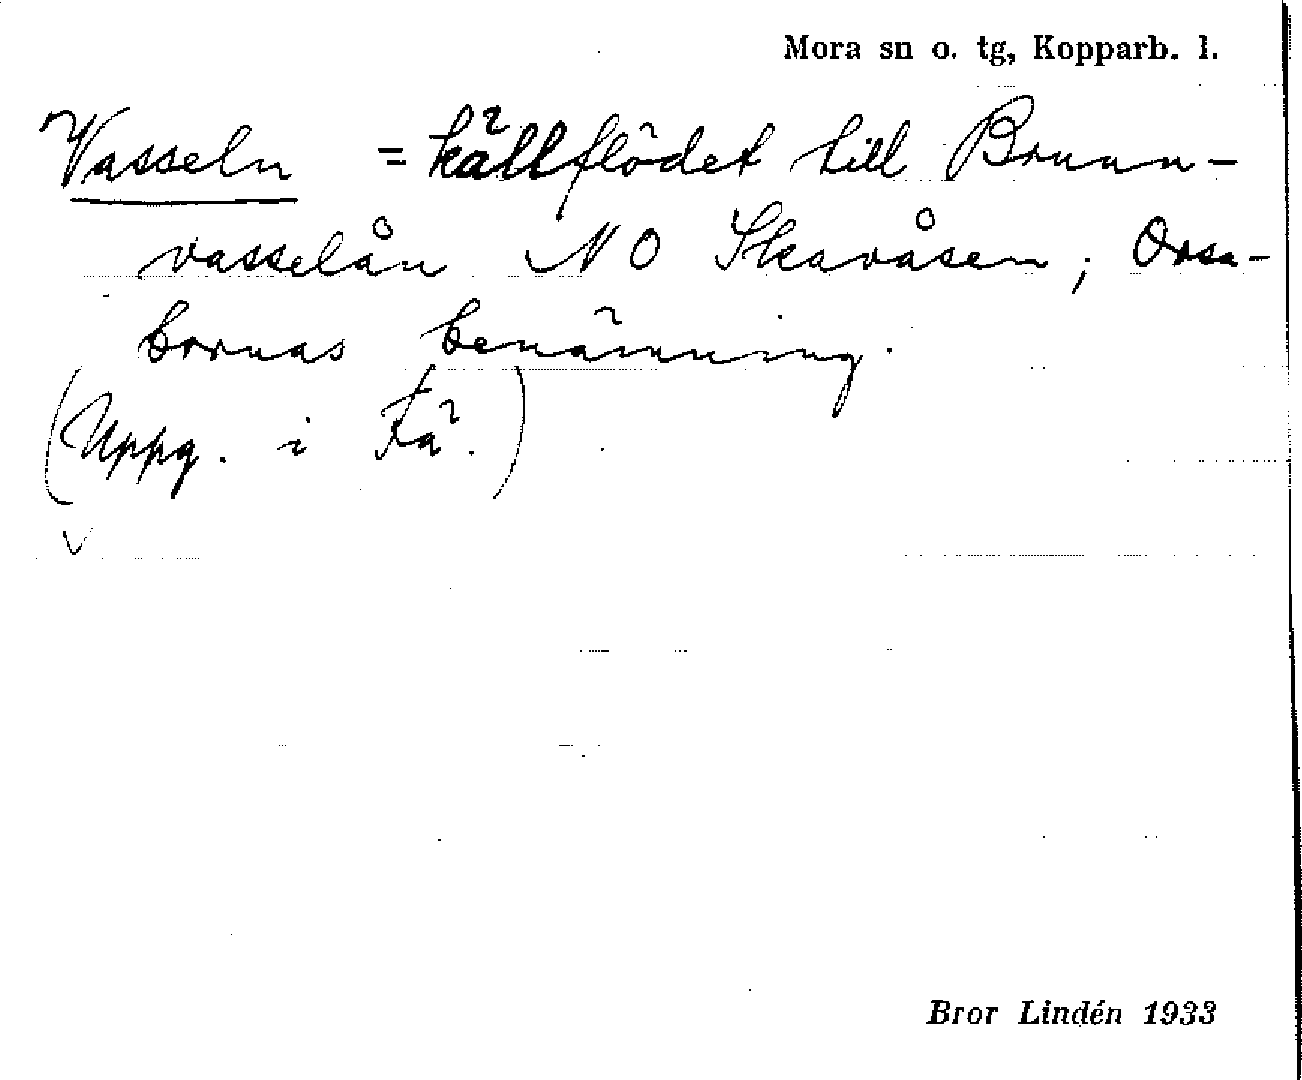 Mora sn o. tg, Kopparb. l.
Vasseln = källflödet till Brunn-
vasselån NO Skavåsen; Orsa-
bornas benämning.
(Uppg. i Fä.)
V
Bror Lindén 1933